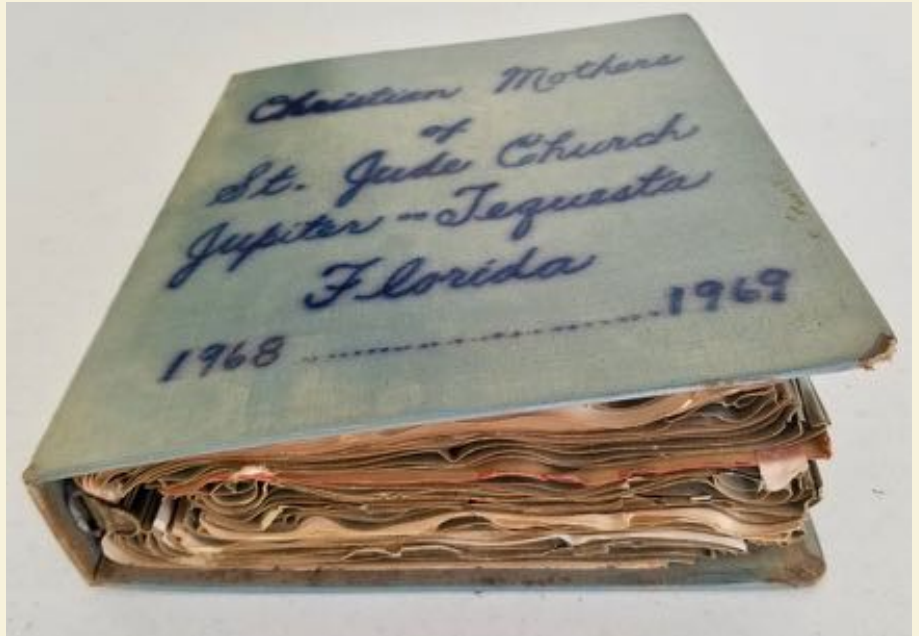 Christian Mothers
of
St. Jude Church
Jupiter - Tequesta
Florida
1968 ................ 1969